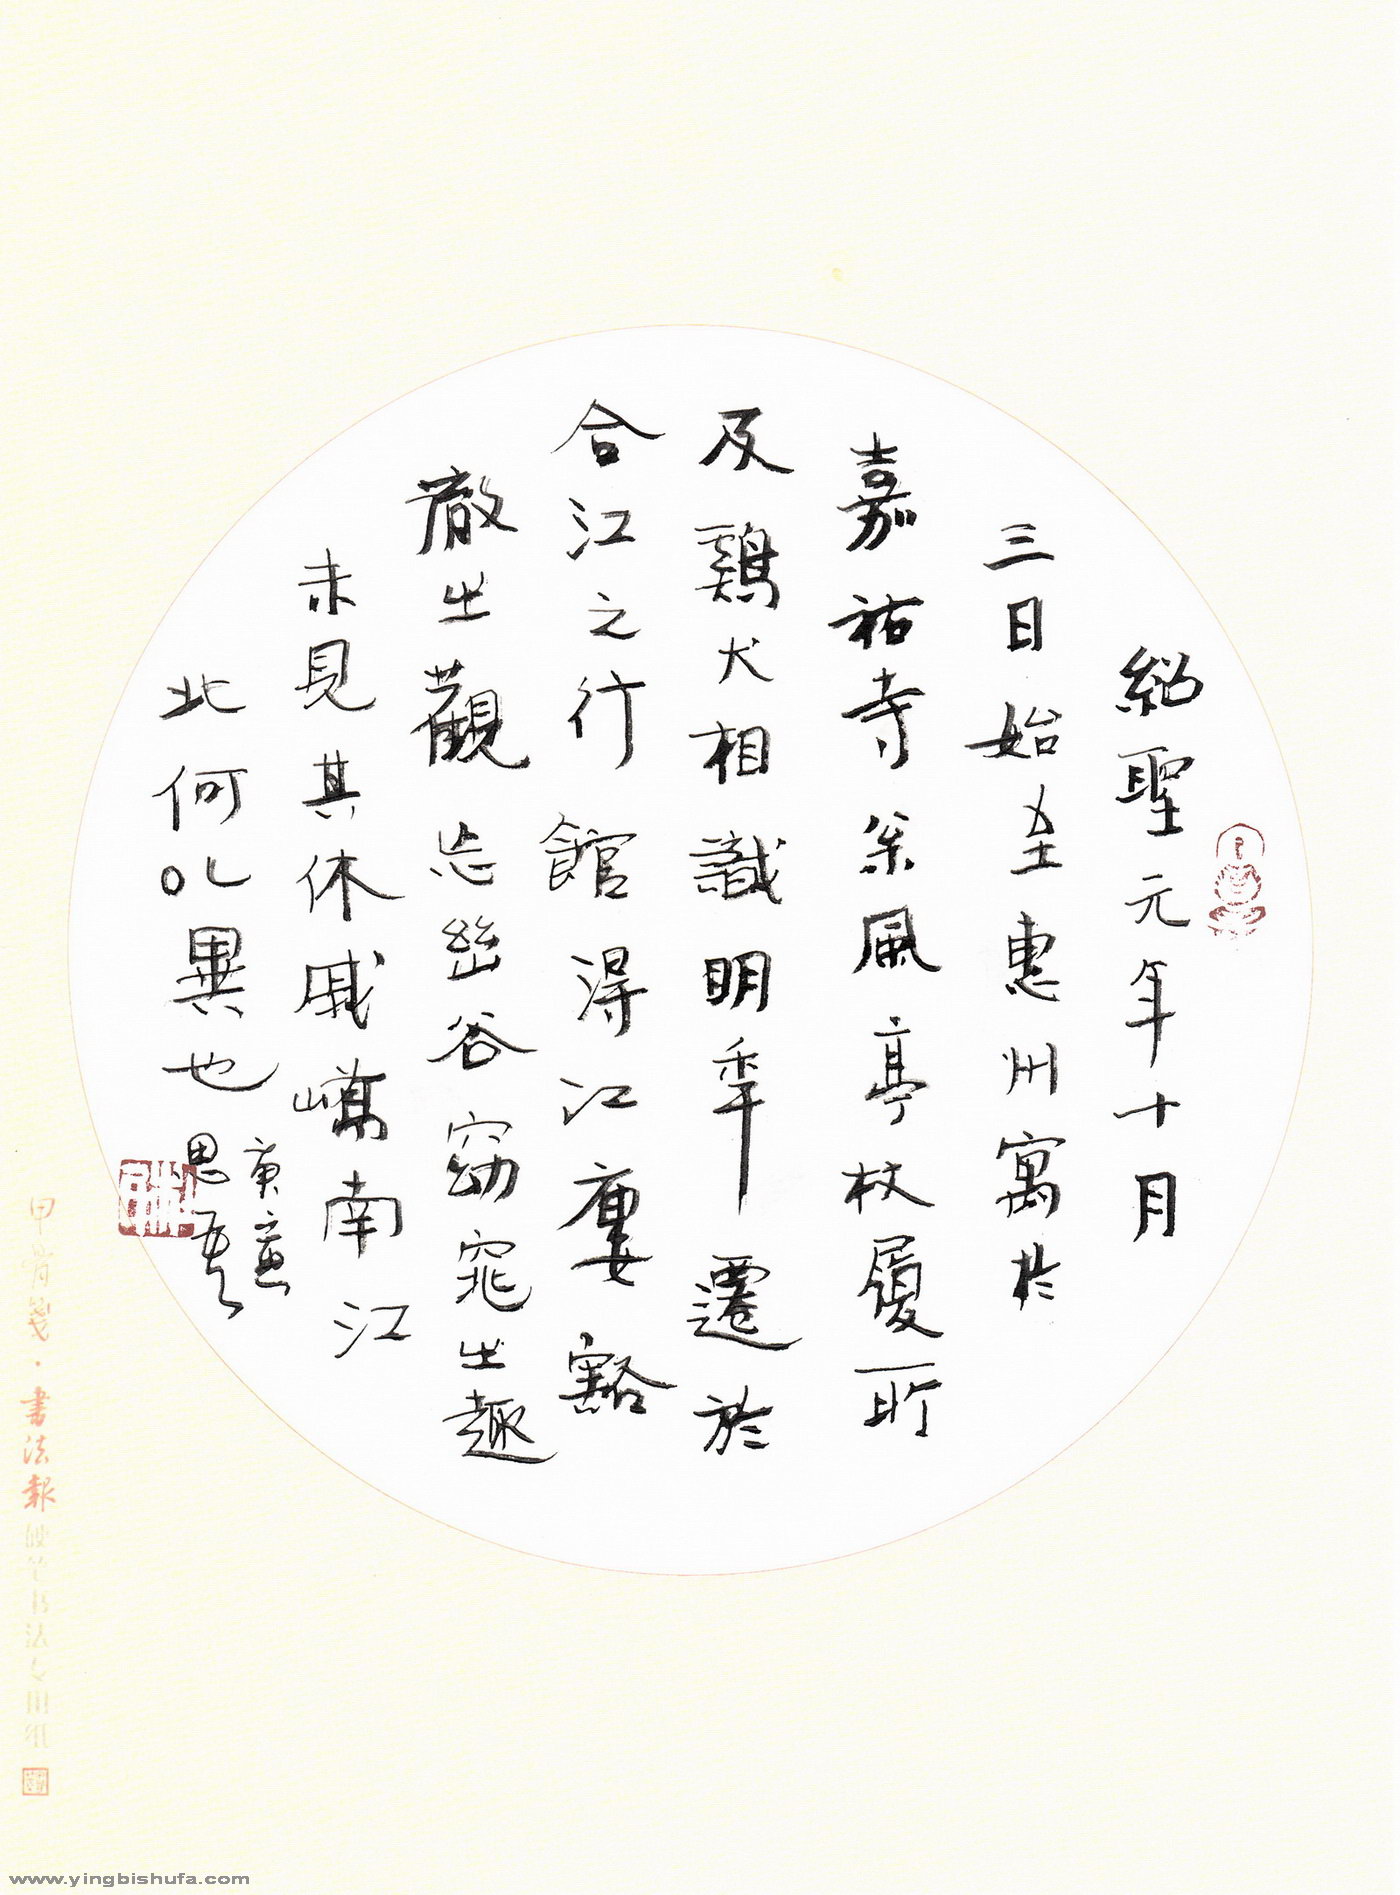 紹聖元年十月
三日始至惠州寓於
嘉祐寺枩風亭杖履所
及鷄犬相識明年遷於
合江之行館得江廔豁
徹之觀忘幽谷窈窕之趣
未見其休戚嶠南江
北何以異也
庚
思吾
甲骨箋·書法報硬笔书法专用纸
www.yingbishufa.com